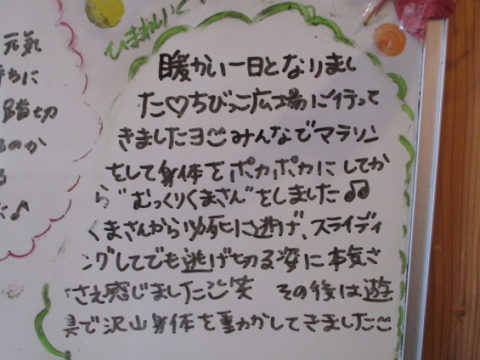 ひまわりぐ
元気
ちに
踏切
るのか
る
た♪
暖かい一日となりまし
た♡ちびっこ広場に行って
きましたヨ☺みんなでマラソン
をして身体をポカポカにしてか
ら"むっくりくまさん"をしました♫
くまさんから必死に逃げ、スライディ
ングしてでも逃げ切る姿に本気さ
さえ感じました☺笑 その後は遊
具で沢山身体を動かしてきました☺